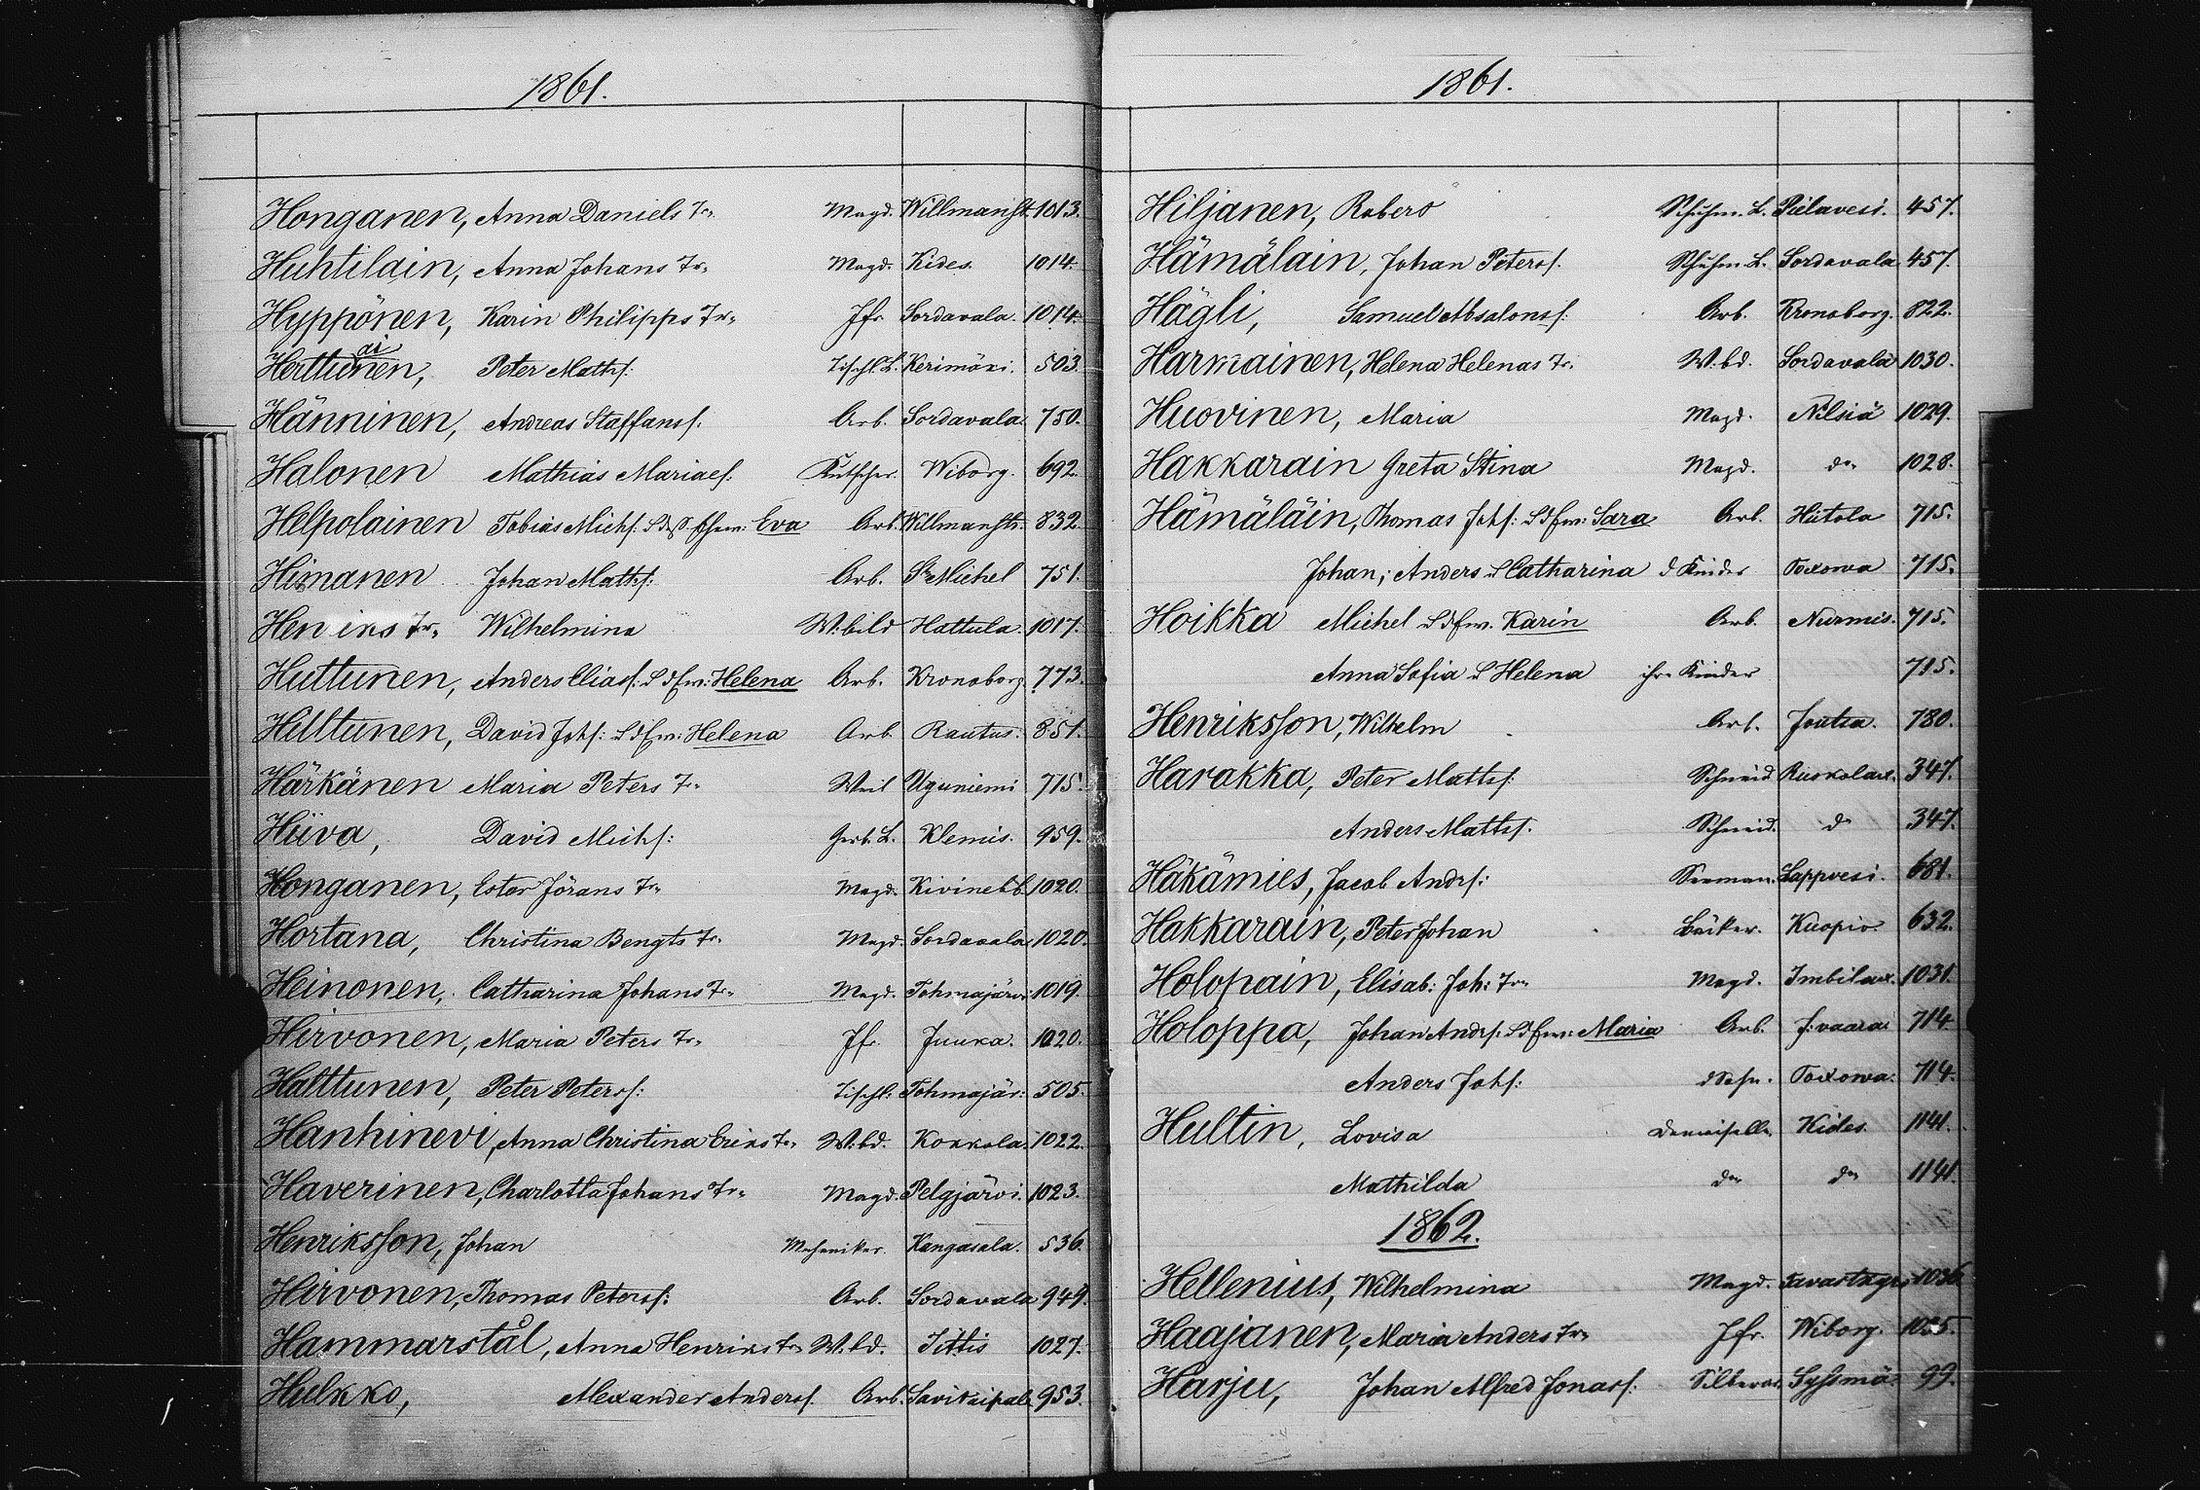 1861.
Honganen, Anna Daniels Tr. Magd. Willmanst. 1013.
Huhtilain, Anna Johans Tr. Magd. Kides. 1014.
Hyppönen, Karin Philipps Tr. Jfr. Sordavala. 1014.
ai
Herttunen, Peter Matts: Tischl. L. Kerimäxi. 503.
Hänninen, Andreas Staffanss. Arb. Sordavala 750.
Halonen Mathias Mariaes. Kutscher. Wiborg. 692.
Helpolainen Tobias Michs. Eva Arb. Willmanstr. 832.
Himanen Johan Matss: Arb. St Michel 751.
Tr. Wilhelmina W.bild Hattula. 1017.
Huttunen, Anders Eliass: Helena Arb. Kronoborg. 773.
Hilttunen, David Johs: Helena Arb. Rautus. 851.
Härkänen Maria Peters Tr. Uguniemi 715.
Hiiva, David Michs: Gerb. L. Klemis. 959.
Honganen, Ester Jörans Tr. Magd. Kivinebb. 1020.
Hortana, Christina Bengts Tr. Magd. Sordavala 1020.
Heinonen, Catharina Johans Tr. Magd. Tohmajärvi 1019.
Hirvonen, Maria Peters Tr. Jfr. Juuka. 1020.
Halttunen, Peter Peterss: Tischl: Tohmajär: 505.
Hanhinevi, Anna Christina Eriks Tr. W.bd. Kokkola 1022.
Haverinen, Charlotta Johans Tr. Magd. Pelgjärvi. 1023.
Henriksson, Johan Mechaniker. Kangasala. 536.
Hirvonen, Thomas Peterss: Arb. Sordavala 949.
Hammarstål, Anna Henriks Tr. W.bd. Sittis 1027.
Hulkko, Alexander Anderss. Arb. Savitaipal. 953.
1861.
Hiljanen, Robero Schuhm. L. Pielavesi. 457.
Hämälain, Johan Peterss. Schuhm. L. Sordavala 457.
Hägli, Samuel Absalonss. Arb. Kronoborg. 822.
Harmainen, Helena Helenas Tr. W.bd. Sordavala 1030.
Huovinen, Maria Magd. Nilsiä 1029.
Hakkarain Greta Stina Magd. do 1028.
Hämäläin, Thomas Johs: Sara Arb. Hiitola 715.
Johan; Anders u Catharina d Kinder Toxowa 715.
Hoikka Michel Karin Arb. Nurmis. 715.
Anna Sofia u Helena ihre Kinder 715.
Henriksson, Wilhelm Arb. Joutsa. 780.
Harakka, Peter Mattss: Schneid. Ruokolax. 347.
Anders Mattss. Schneid. do 347.
Häkämies, Jacob Andrs: Seeman. Lappvesi. 681.
Hakkarain, Peter Johan Bäcker. Kuopio. 632.
Holopain, Elisab: Joh: Tr. Magd. Imbilax. 1031.
Holoppa, Johan Andrs: Maria Arb. J:vaara 714.
Anders Johs: d Sohn. Toxowa. 714.
Hultin, Lovisa Demoiselle. Kides. 1141.
Mathilda do do 1141.
1862.
Hellenius, Wilhelmina Magd. 1036.
Haajanen, Maria Anders Tr. Jfr. Wiborg. 1035.
Harju, Johan Alfred Jonass: Silberar. Syssmä. 99.